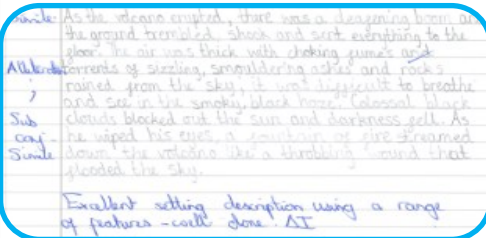 Simile As the volcano erupted, there was a deafening boom and
the ground trembled, shook and sent everything to the
floor. The air was thick with choking fume's and
Alliteration torrents of sizzling, smouldering ashes and rocks
rained from the sky, it was difficult to breathe
; and see in the smokey, black haze. Colossal black
Sub clouds blocked out the sun and darkness fell. As
conj - he wiped his eyes, a fountain of fire streamed
Simile down the volcano like a throbbing wound that
flooded the sky.
Excellent setting description using a range
of features - well done. ΔI